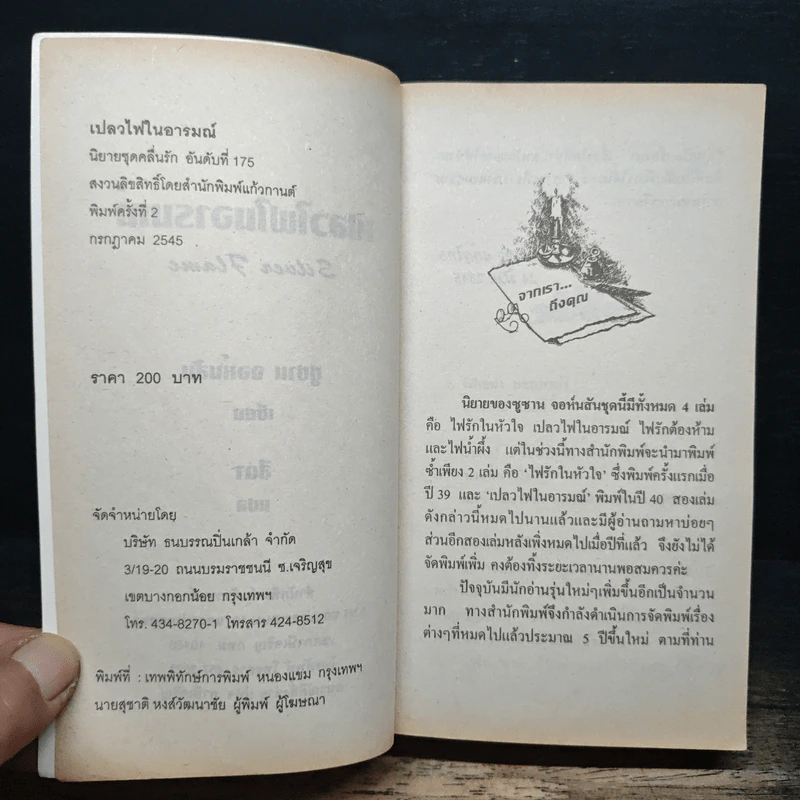 เปลวไฟในอารมณ์
นิยายชุดคลื่นรัก อันดับที่ 175
สงวนลิขสิทธิ์โดยสำนักพิมพ์แก้วกานต์
พิมพ์ครั้งที่ 2
กรกฎาคม 2545
ราคา 200 บาท
จัดจำหน่ายโดย
บริษัท ธนบรรณปิ่นเกล้า จำกัด
3/19-20 ถนนบรมราชชนนี ซ.เจริญสุข
เขตบางกอกน้อย กรุงเทพฯ
โทร. 434-8270-1 โทรสาร 424-8512
พิมพ์ที่ : เทพพิทักษ์การพิมพ์ หนองแขม กรุงเทพฯ
นายสุชาติ หงส์วัฒนาชัย ผู้พิมพ์ ผู้โฆษณา
จากเรา...
ถึงคุณ
นิยายของซูซาน จอห์นสันชุดนี้มีทั้งหมด 4 เล่ม
คือ ไฟรักในหัวใจ เปลวไฟในอารมณ์ ไฟรักต้องห้าม
และไฟน้ำผึ้ง แต่ในช่วงนี้ทางสำนักพิมพ์จะนำมาพิมพ์
ซ้ำเพียง 2 เล่ม คือ 'ไฟรักในหัวใจ' ซึ่งพิมพ์ครั้งแรกเมื่อ
ปี 39 และ 'เปลวไฟในอารมณ์' พิมพ์ในปี 40 สองเล่ม
ดังกล่าวนี้หมดไปนานแล้วและมีผู้อ่านถามหาบ่อยๆ
ส่วนอีกสองเล่มหลังเพิ่งหมดไปเมื่อปีที่แล้ว จึงยังไม่ได้
จัดพิมพ์เพิ่ม คงต้องทิ้งระยะเวลานานพอสมควรค่ะ
ปัจจุบันมีนักอ่านรุ่นใหม่ๆเพิ่มขึ้นอีกเป็นจำนวน
มาก ทางสำนักพิมพ์จึงกำลังดำเนินการจัดพิมพ์เรื่อง
ต่างๆที่หมดไปแล้วประมาณ 5 ปีขึ้นใหม่ ตามที่ท่าน